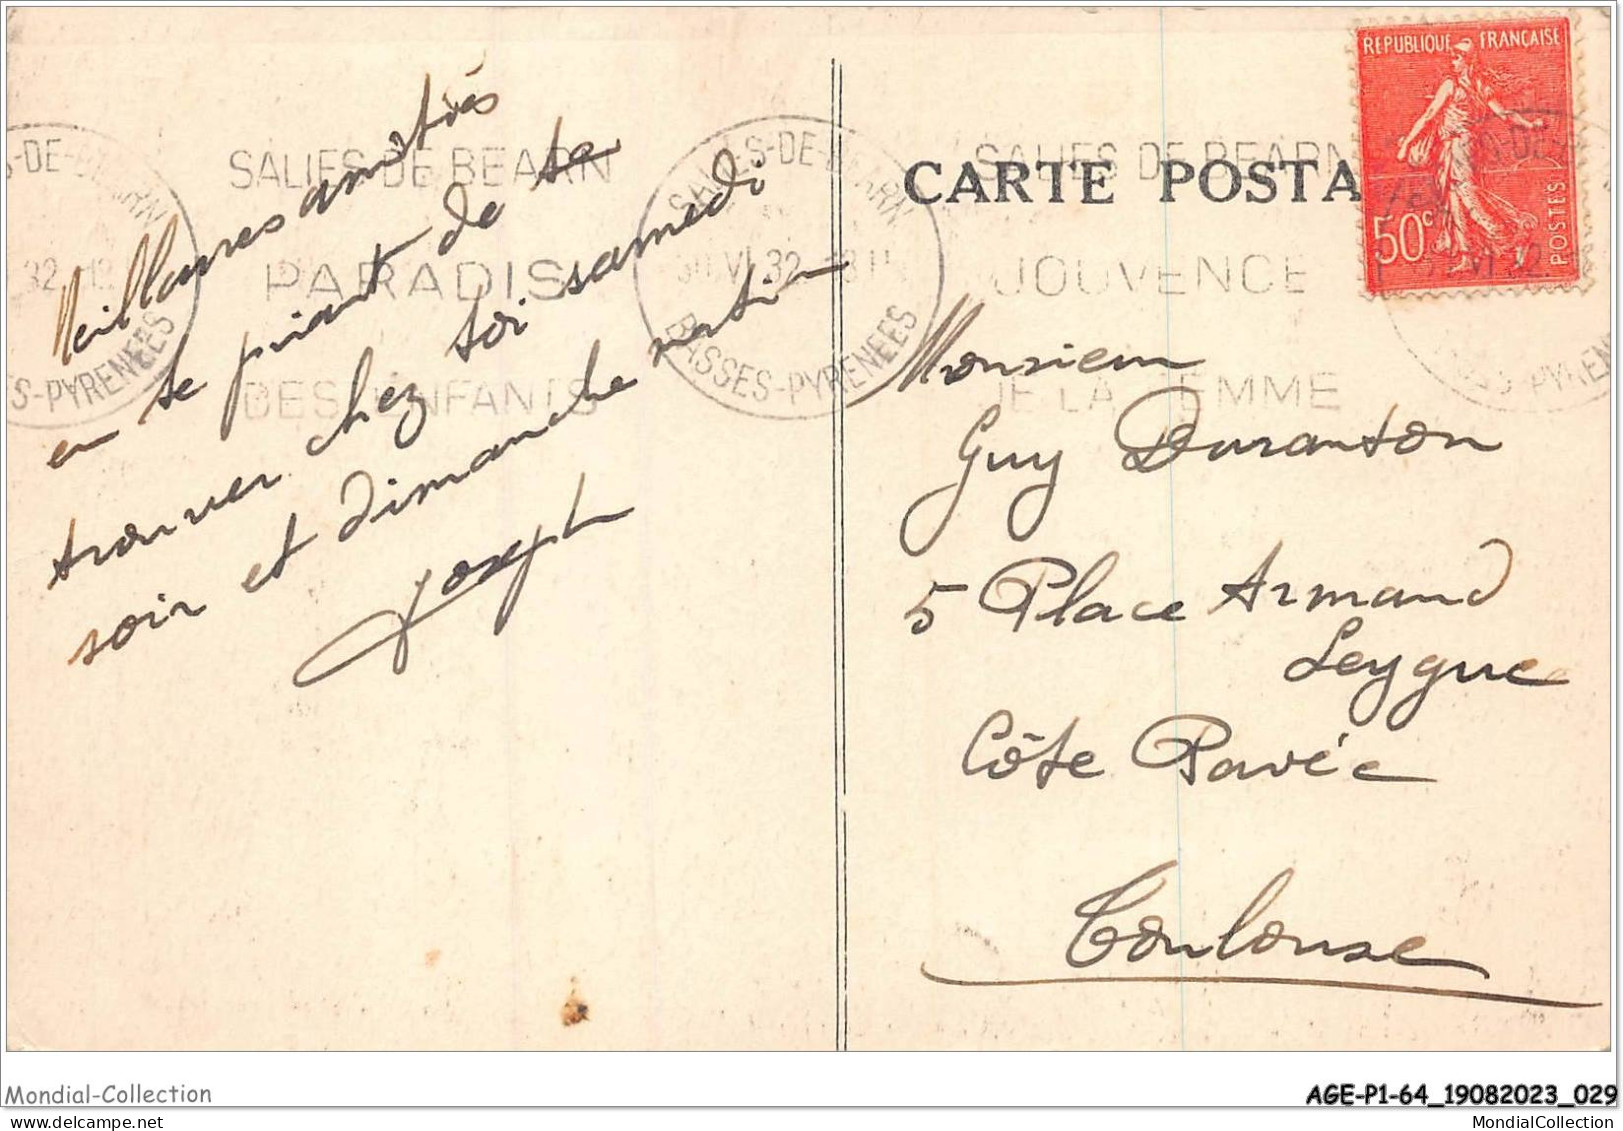 Meilleures amitiés
en te priant de te
trouver chez toi samedi
soir et dimanche matin
Joseph
SALIES DE BEARN
PARADIS
DES ENFANTS
SALIES-DE-BEARN
30 VI 32
BASSES-PYRENEES
CARTE POSTA
SALIES DE BEARN
JOUVENCE
DE LA FEMME
REPUBLIQUE FRANÇAISE
50c
POSTES
Monsieur
Guy Duranton
5 Place Armand
Leygue
Côte Pavée
Toulouse
Mondial-Collection
AGE-P1-64_19082023_029
MondialCollection